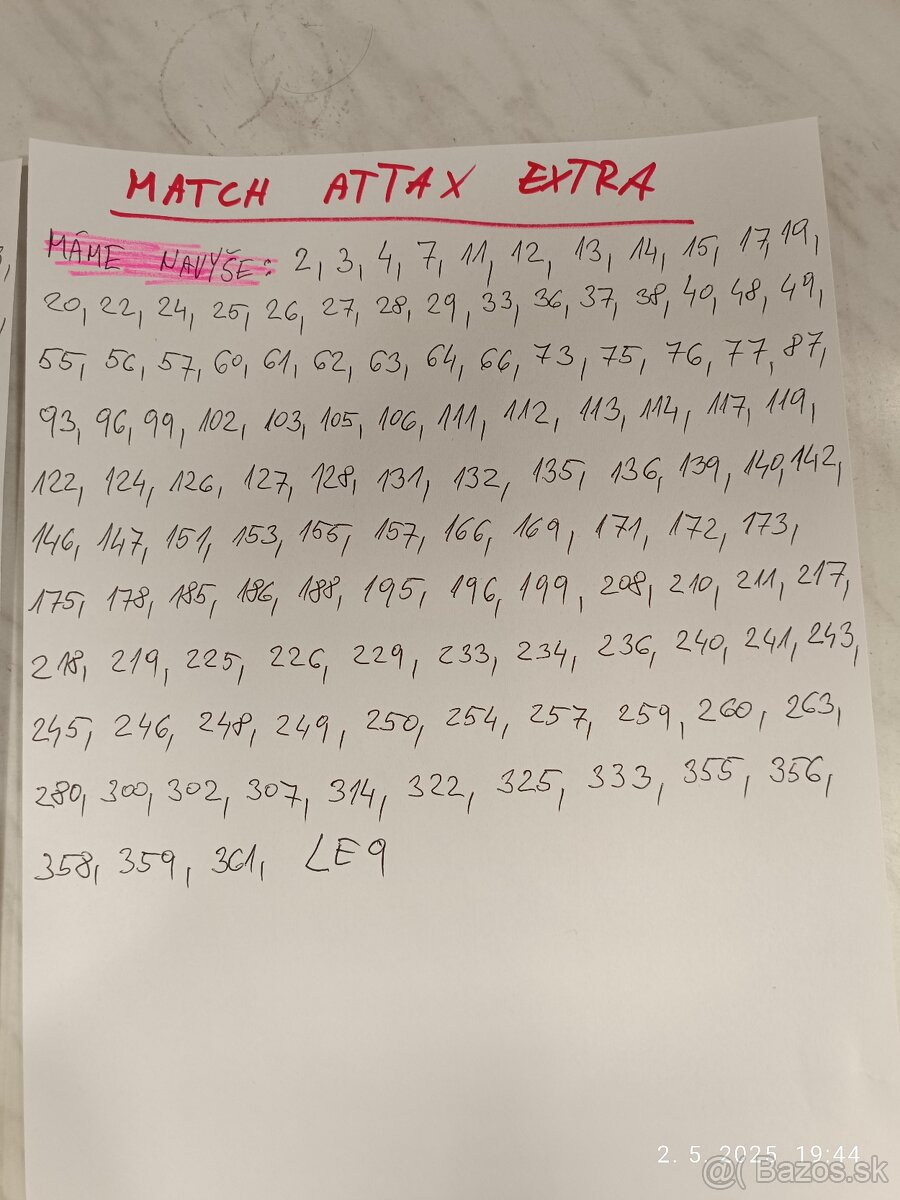 MATCH ATTAX EXTRA
MÁME NAVYŠE: 2, 3, 4, 7, 11, 12, 13, 14, 15, 17, 19,
20, 22, 24, 25, 26, 27, 28, 29, 33, 36, 37, 38, 40, 48, 49,
55, 56, 57, 60, 61, 62, 63, 64, 66, 73, 75, 76, 77, 87,
93, 96, 99, 102, 103, 105, 106, 111, 112, 113, 114, 117, 119,
122, 124, 126, 127, 128, 131, 132, 135, 136, 139, 140, 142,
146, 147, 151, 153, 155, 157, 166, 169, 171, 172, 173,
175, 178, 185, 186, 188, 195, 196, 199, 208, 210, 211, 217,
218, 219, 225, 226, 229, 233, 234, 236, 240, 241, 243,
245, 246, 248, 249, 250, 254, 257, 259, 260, 263,
280, 300, 302, 307, 314, 322, 325, 333, 355, 356,
358, 359, 361, LE9
2. 5. 2025 19:44
@( Bazos.sk